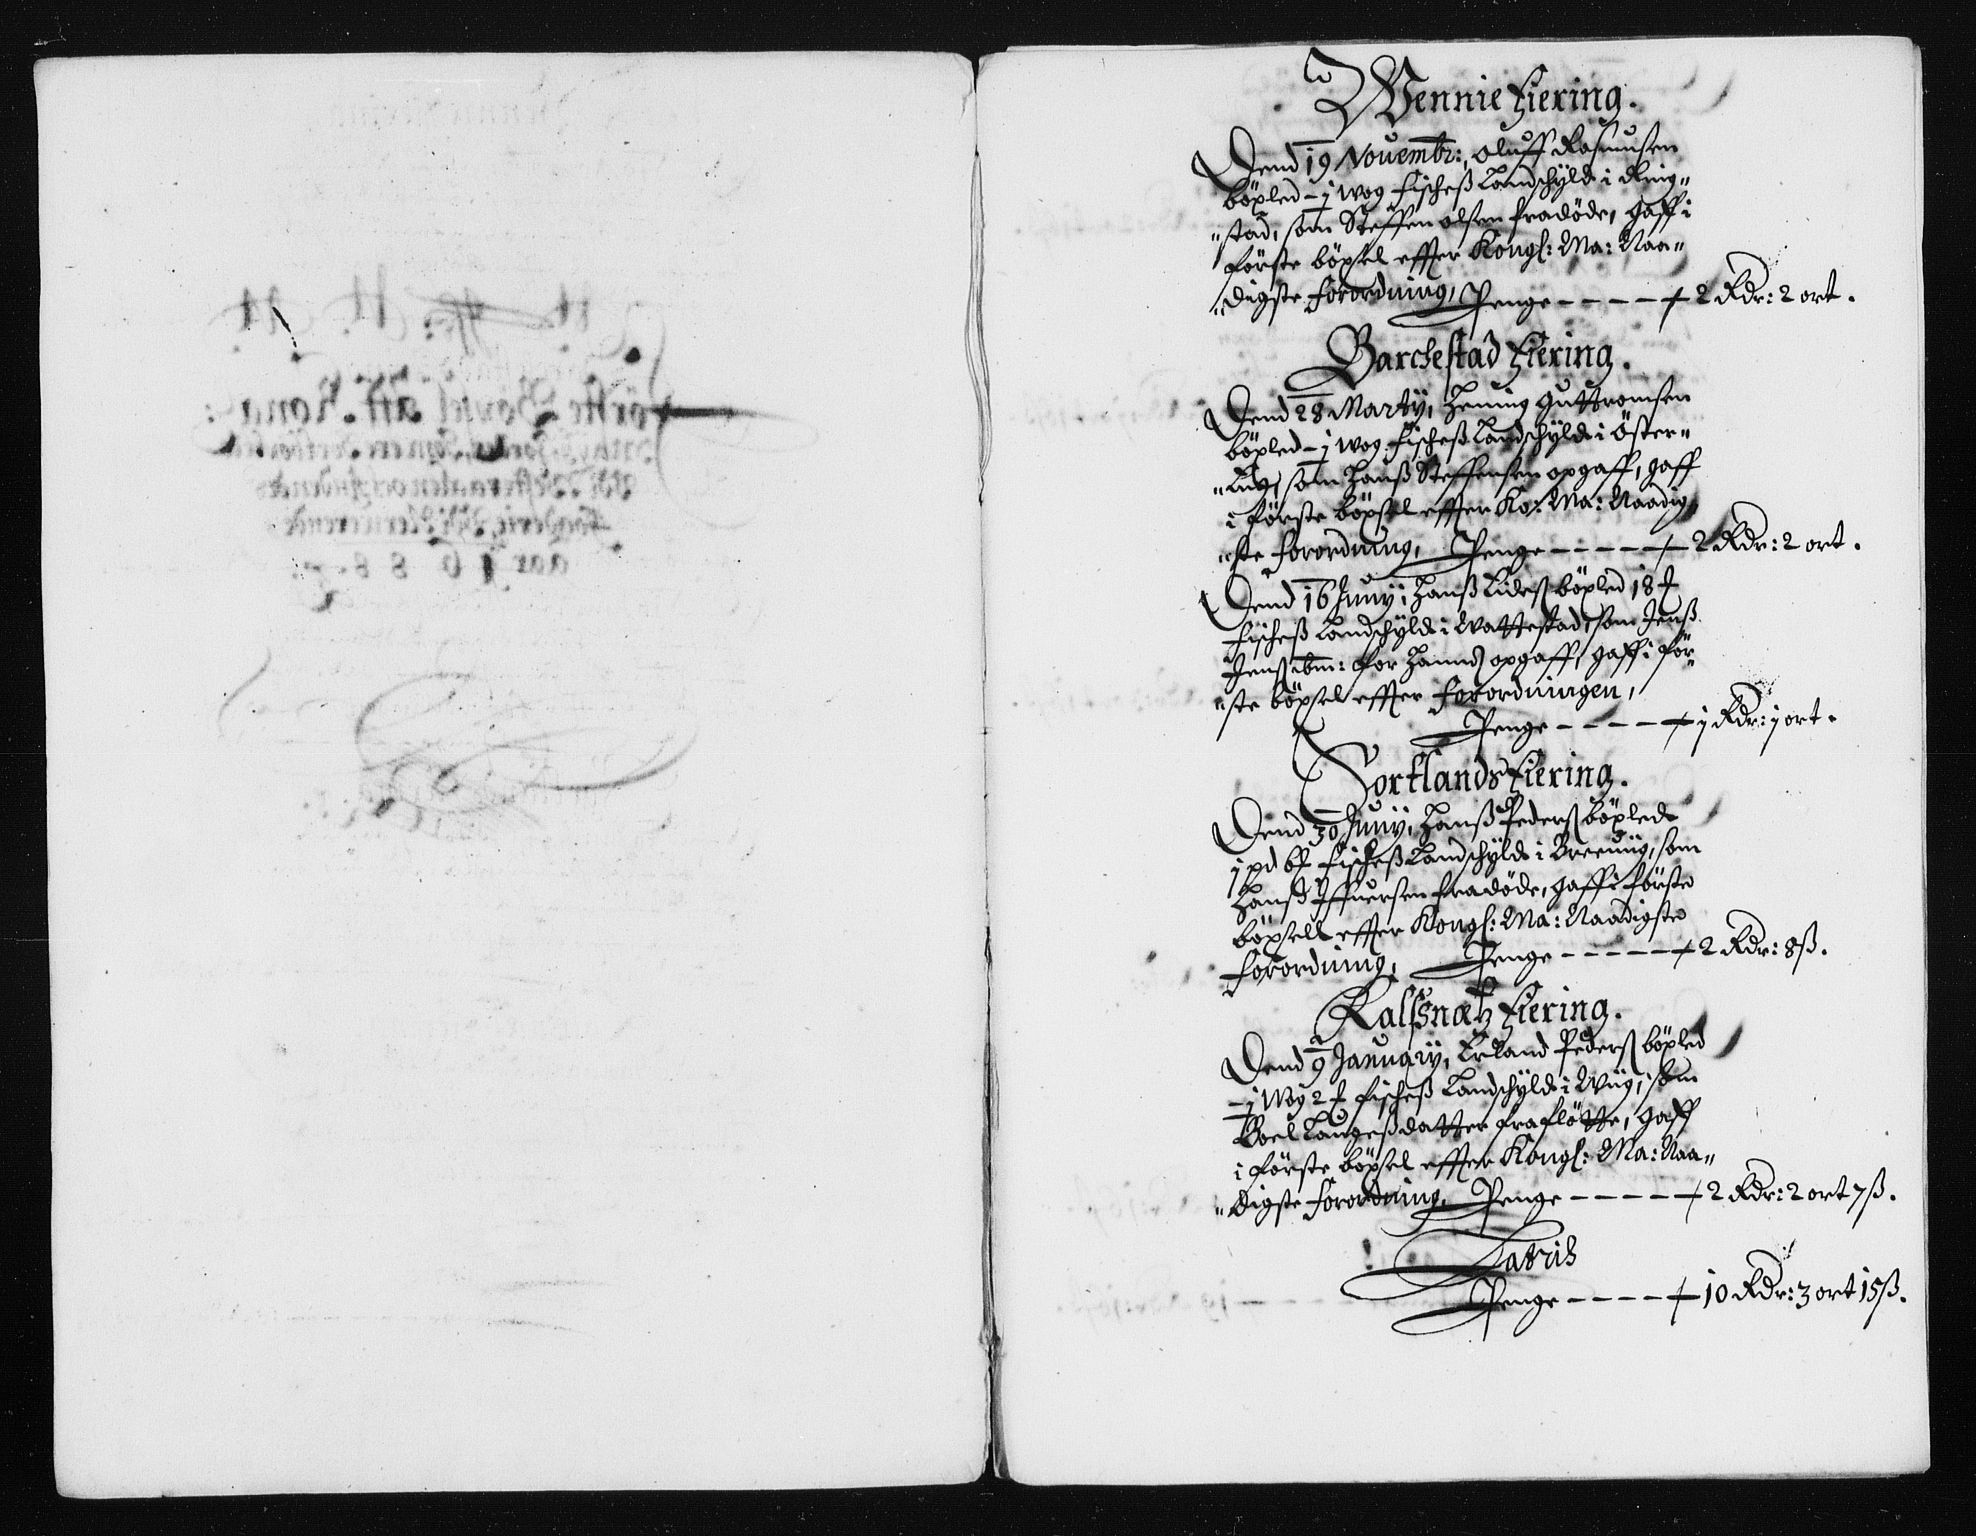 Wennie Fiering.
Dend 19 Novembr:, Oluff Rasmusen
böxled – 1 wog fischeß Landschyld i Ring„
„stad, som Steffen Olsen fradöde, gaff i
förste böxsel effter Kongl: Ma: Naa„
„digste forordning, Penge – – – – 2 Rdr: 2 ort.
Barchestad Fiering.
Dend 28 Martij, Hening Guttromsen
böxled – 1 wog fischeß Landschyld i Öster„
som Hanß Steffensen opgaff, gaff
i förste böxsel effter Ko: Ma: Naadig
„ste forordning, Penge – – – – 2 Rdr: 2 ort.
Dend 16 Junij, Hanß böxled 18
fischeß Landschyld i Wattestad, som Jenß
Jenß ibm: for Hannd opgaff, gaff i för„
„ste böxsel effter forordningen,
Penge – – – – 1 Rdr: 1 ort.
Sortlands Fiering.
Dend 30 Junij, Hanß Peders böxled
1 pd 6 fischeß Landschyld i som
Hanß Iffuersen fradöde, gaff i förste
böxsell effter Kongl: Ma: Naadigste
forordning, Penge – – – – 2 Rdr: 8 ß.
Kalßnæß Fiering.
Dend 9 January, Erland Peders böxled
– 1 Wog 2 fischeß Landschyld i Wiig, som
Boel Laugeßdatter fraflötte, gaff
i förste böxsel effter Kongl: Ma: Naa„
„digste forordning, Penge – – – – 2 Rdr: 2 ort 7 ß.
Lateris
Penge – – – – 10 Rdr: 3 ort 15 ß.